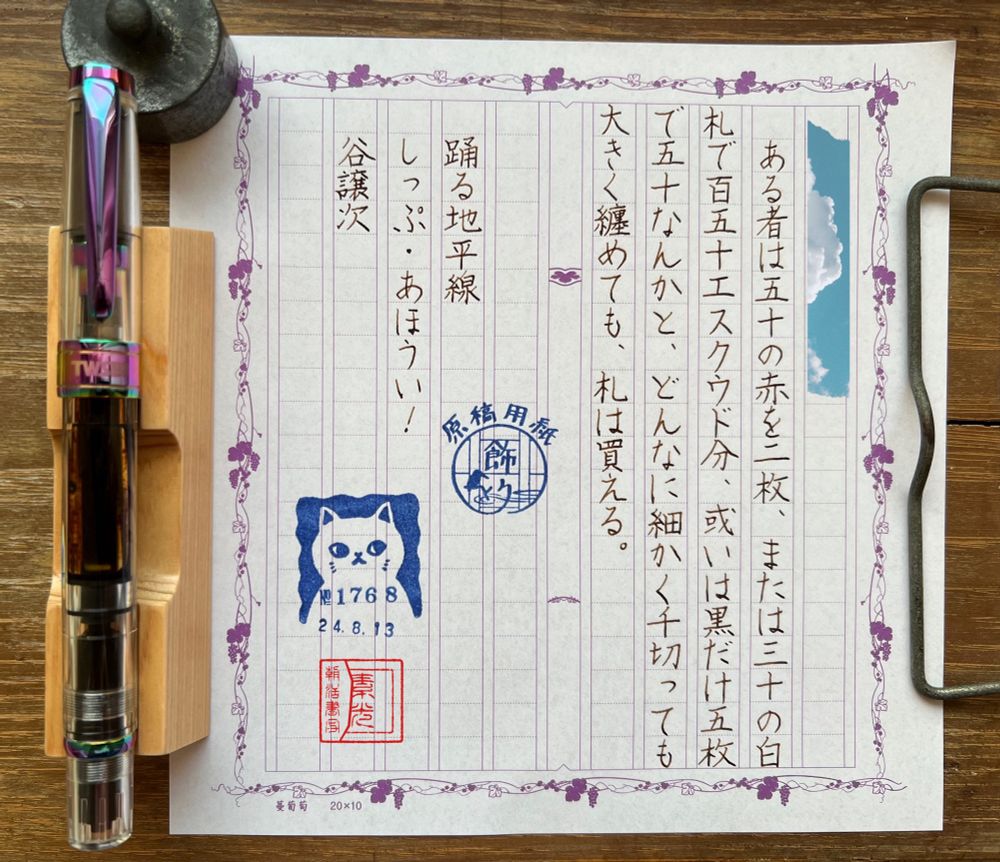 ある者は五十の赤を二枚、または三十の白
札で百五十エスクウド分、或いは黒だけ五枚
で五十なんかと、どんなに細かく千切っても
大きく纏めても、札は買える。
踊る地平線
しっぷ・あほうい！
谷譲次
原稿用紙
飾
№1768
24.8.13
朝活書写
蔓葡萄 20×10